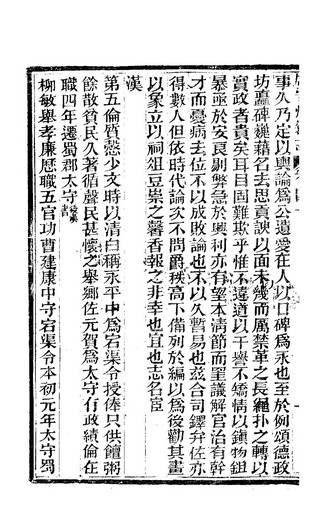 事久乃定以輿論爲公遺愛在人以口碑爲永也至於例頌德政
坊匾碑緣藉名去思貢諛以面未幾而厲禁革之長繩扑之轉以
實政者貴矣耳目固難欺乎惟不違道以干譽不矯情以鎮物鉏
暴亟於安良剔弊急於興利亦有望本清節而罣議解官治有幹
才而憂病去位不以成敗論也不以久暫易也茲合司鐸弁佐亦
得數人但依時代論次不問爵秩高下備列於編以爲後勸其畫
以象立以祠俎豆崇之馨香報之非幸也宜也志名臣
漢
第五倫質慤少文時以清白稱永平中爲宕渠令授俸只供饘粥
餘散貧民久著循聲民甚懷之舉鄉佐元賀爲太守有政績倫在
職四年遷蜀郡太守
柳敏舉孝廉歷職五官功曹建康中守宕渠令本初元年太守蜀